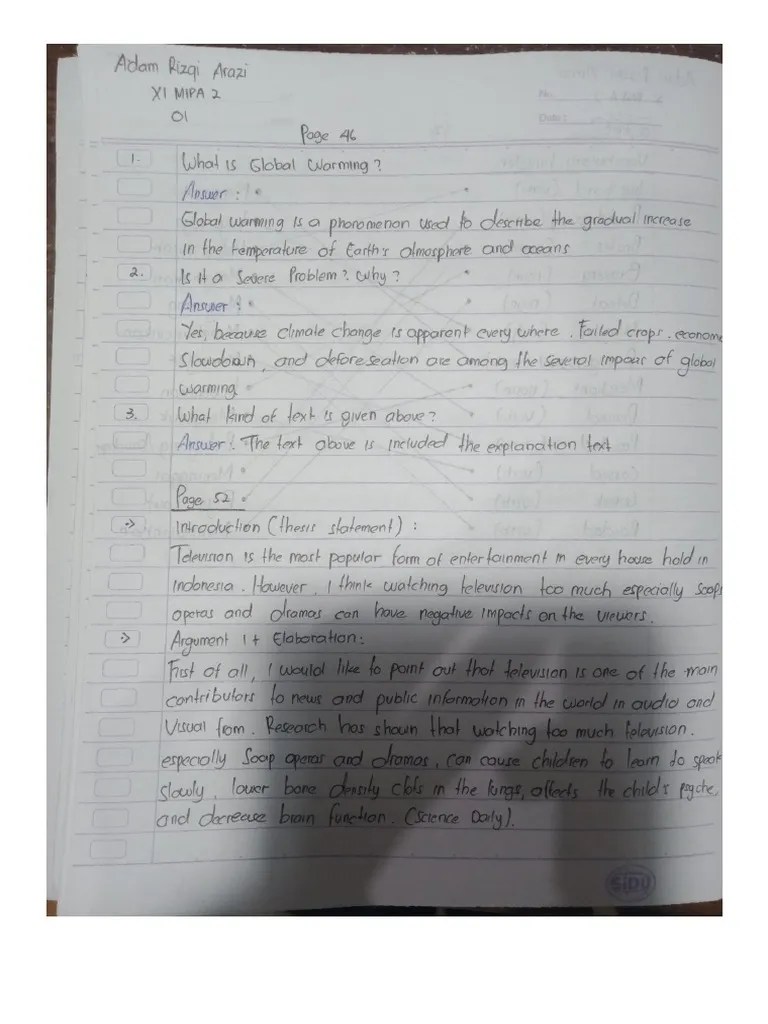 Adam Rizqi Arazi
XI MIPA 2
01
Page 46
1. What is Global Warming?
Answer :
Global warming is a phonomenon used to describe the gradual increase
in the temperature of Earth's atmosphere and oceans
2. Is it a Severe Problem? Why?
Answer :
Yes, because climate change is apparent every where. Failed crops, econome
slowdown, and deforeseation are among the several impacr of global
warming
3. What kind of text is given above?
Answer : The text above is included the explanation text
Page 52
-> Introduction (thesis statement) :
Television is the most popular form of entertainment in every house hold in
Indonesia. However, I think watching television too much especially soap
operas and dramas can have negative impacts on the viewers.
-> Argument 1 + Elaboration:
First of all, I would like to point out that television is one of the main
contributors to news and public information in the world in audio and
Visual from. Research has shown that watching too much television.
especially Soap operas and dramas, can cause children to learn to speak
slowly, lower bone density clots in the lungs, affects the child's psyche,
and decrease brain function. (Science Daily).
SIDU